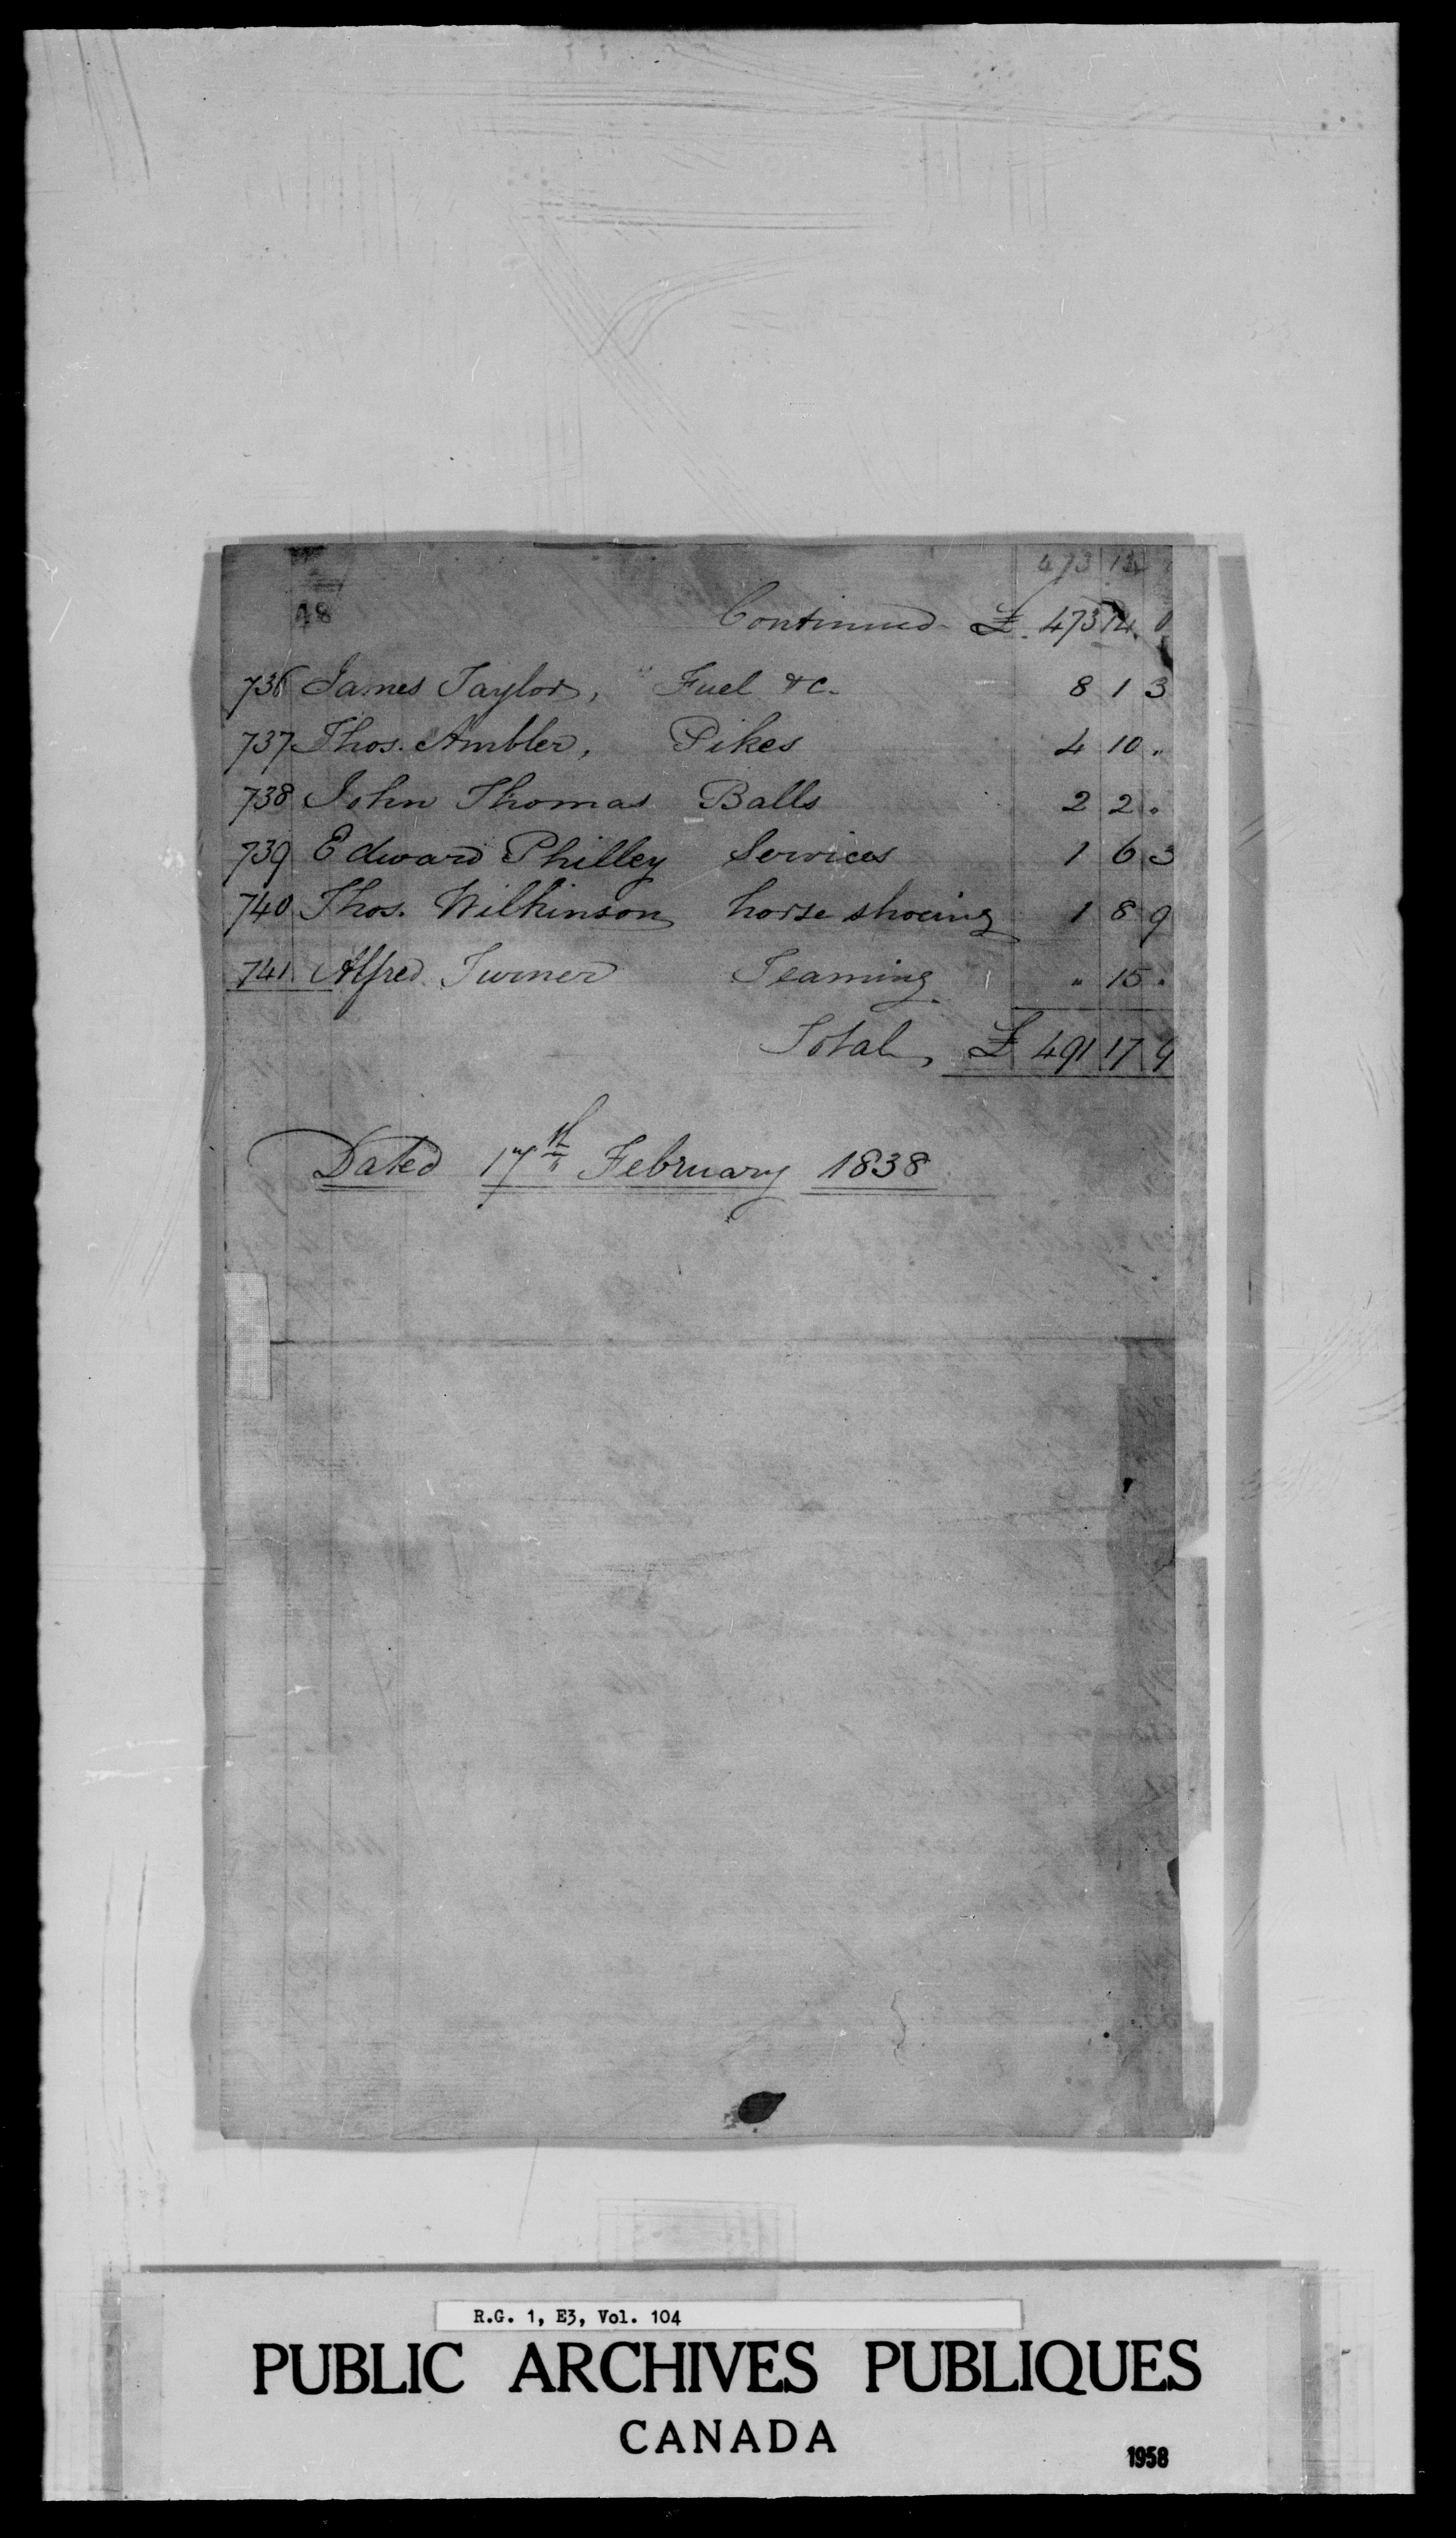 473 13
48
Continued £ 473 14 0
736 James Taylor, " Fuel &c. 8 1 3
737 Thos. Ambler, Pikes 4 10 "
738 John Thomas Balls 2 2 "
739 Edward Philley Services 1 6 3
740 Thos. Wilkinson horse shoeing 1 8 9
741 Alfred Turner Teaming " 15 "
Total, £ 491 17 9
Dated 17th February 1838
R.G. 1, E3, Vol. 104
PUBLIC ARCHIVES PUBLIQUES
CANADA
1958